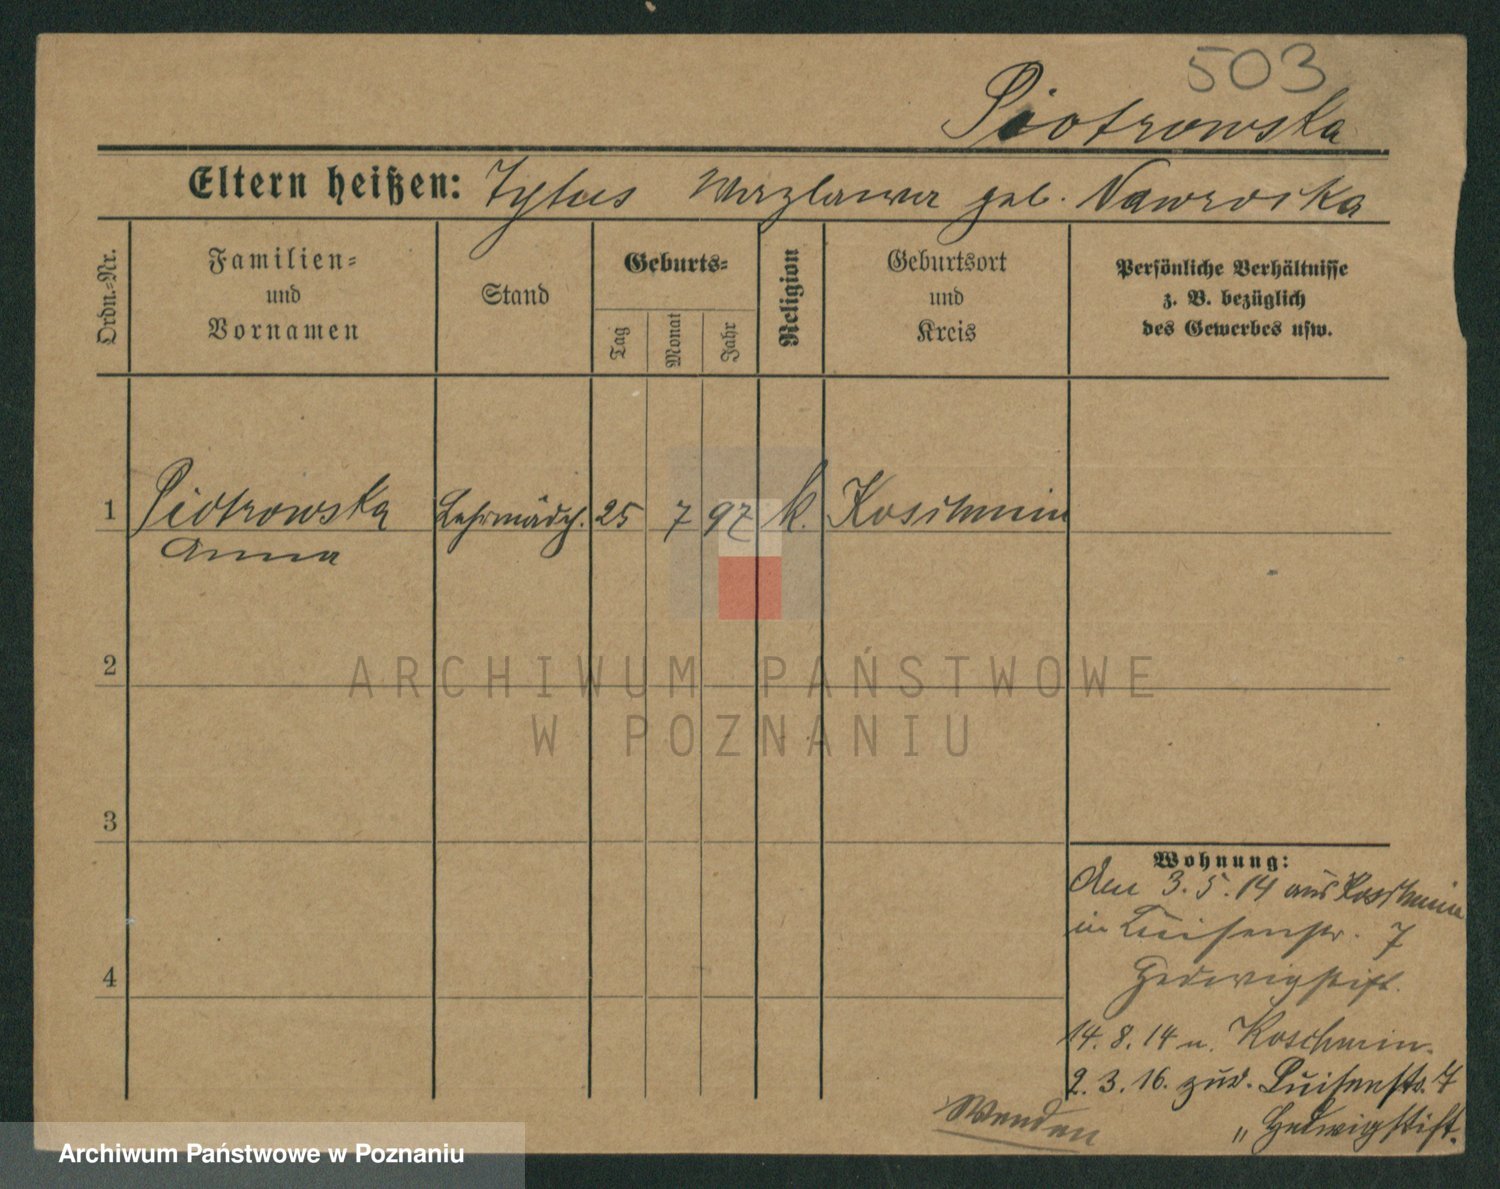 503
Piotrowska
Eltern heißen: Tytus Wazlawa geb. Nawrocka
Ordn.-Nr.
Familien-
und
Vornamen
Stand
Geburts-
Tag
Monat
Jahr
Religion
Geburtsort
und
Kreis
Persönliche Verhältnisse
z. B. bezüglich
des Gewerbes usw.
1 Piotrowska Lehrmädch. 25 7 97 k. Koschmin
Anna
2
3
4
Wohnung:
Den 3.5.14 aus Koschmin
in Luisenstr. 7
Hedwigstift.
14.8.14 n. Koschmin.
2.3.16. zur. Luisenstr. 7
" Hedwigstift.
Wenden
ARCHIWUM PAŃSTWOWE
W POZNANIU
Archiwum Państwowe w Poznaniu